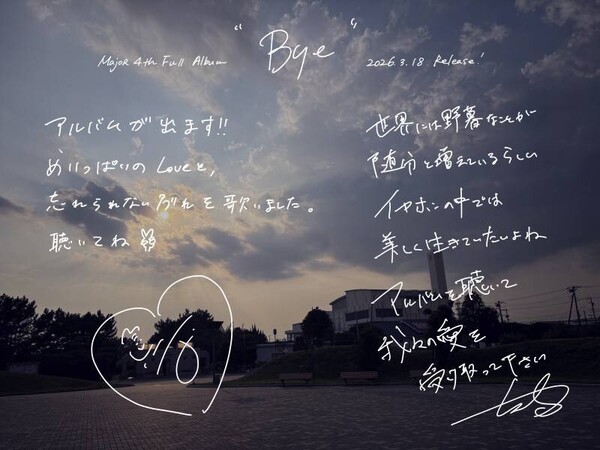 "Bye"
Major 4th Full Album
2026.3.18 Release!
アルバムが出ます!!
めいっぱいのLoveと,
忘れられない別れを歌いました。
聴いてね
世界には野暮なことが
随分と増えているらしい
イヤホンの中では
美しく生きていたいよね
アルバムを聴いて
我々の愛を
受け取って下さい